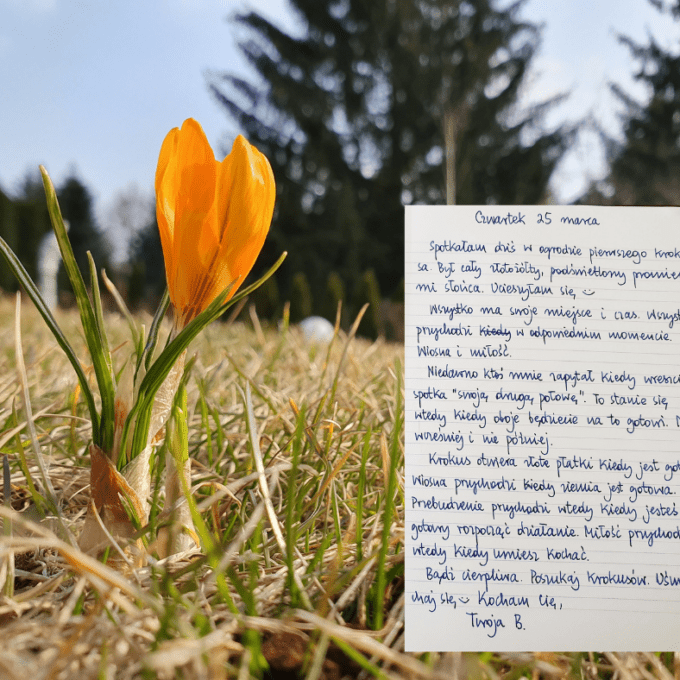 Czwartek 25 marca
Spotkałam dziś w ogrodzie pierwszego krok
sa. Był cały złotożółty, podświetlony promieni
mi słońca. Ucieszyłam się ☺
Wszystko ma swoje miejsce i czas. Wszyst
przychodzi kiedy w odpowiednim momencie.
Wiosna i miłość.
Niedawno ktoś mnie zapytał kiedy wreszci
spotka "swoją drugą połowę". To stanie się
wtedy kiedy oboje będziecie na to gotowi.
wcześniej i nie później.
Krokus otwiera złote płatki kiedy jest got
Wiosna przychodzi kiedy ziemia jest gotowa.
Przebudzenie przychodzi wtedy kiedy jesteś
gotowy rozpocząć działanie. Miłość przychod
wtedy kiedy umiesz kochać.
Bądź cierpliwa. Poszukaj krokusów. Uśm
chaj się ☺ Kocham Cię,
Twoja B.